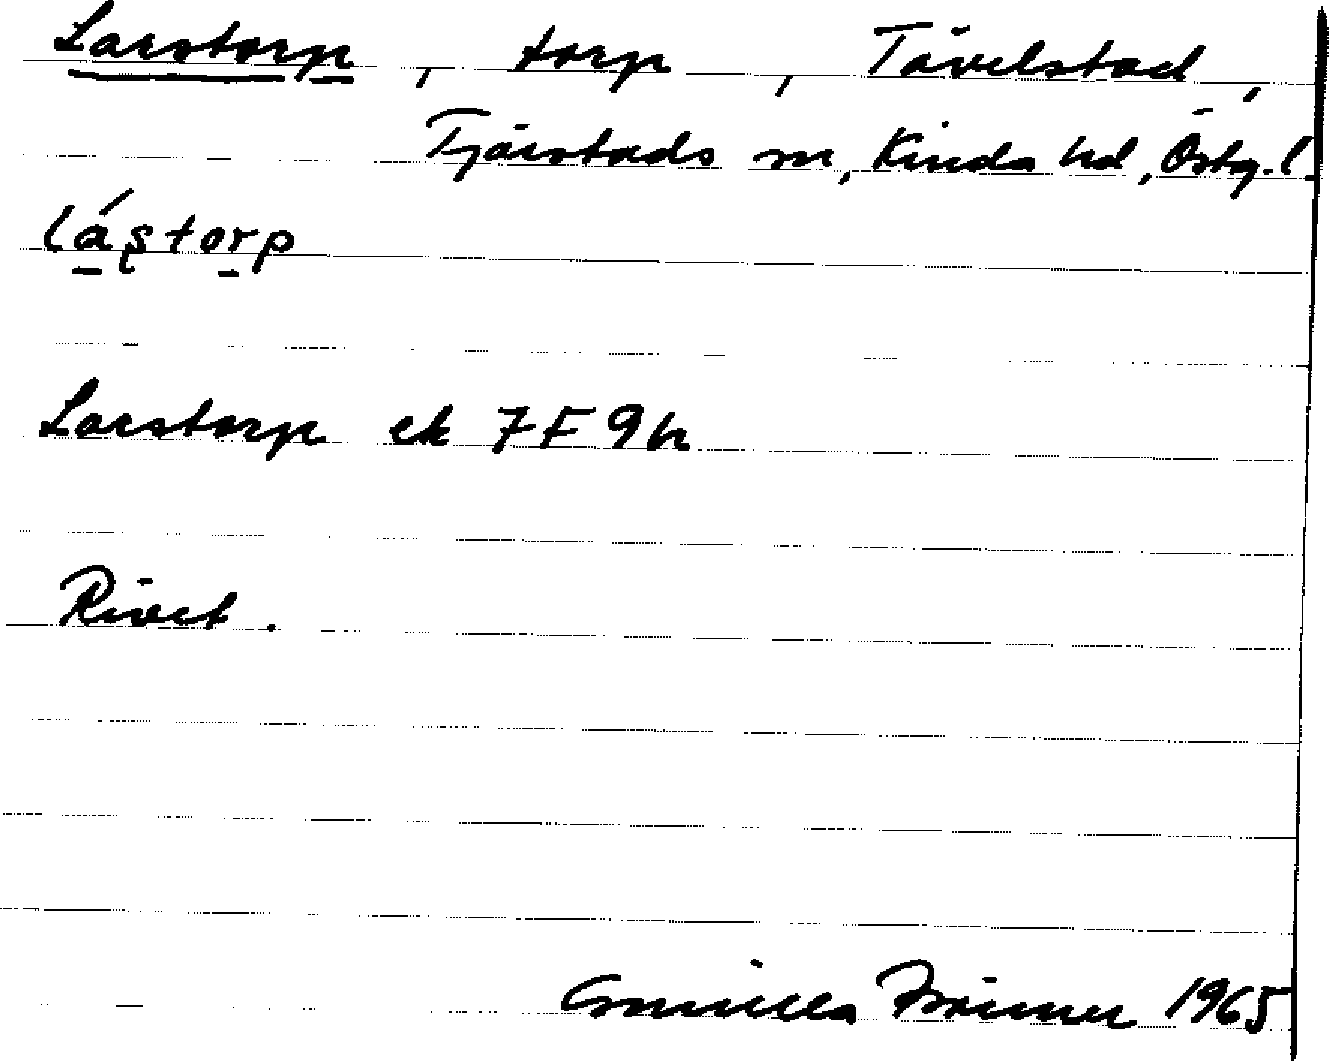 Larstorp, torp, Tävelstad,
Tjärstads sn, Kinda hd, Östg. l.
lástorp
Larstorp ek 7F 9h
Rivet.
Gunilla 1965